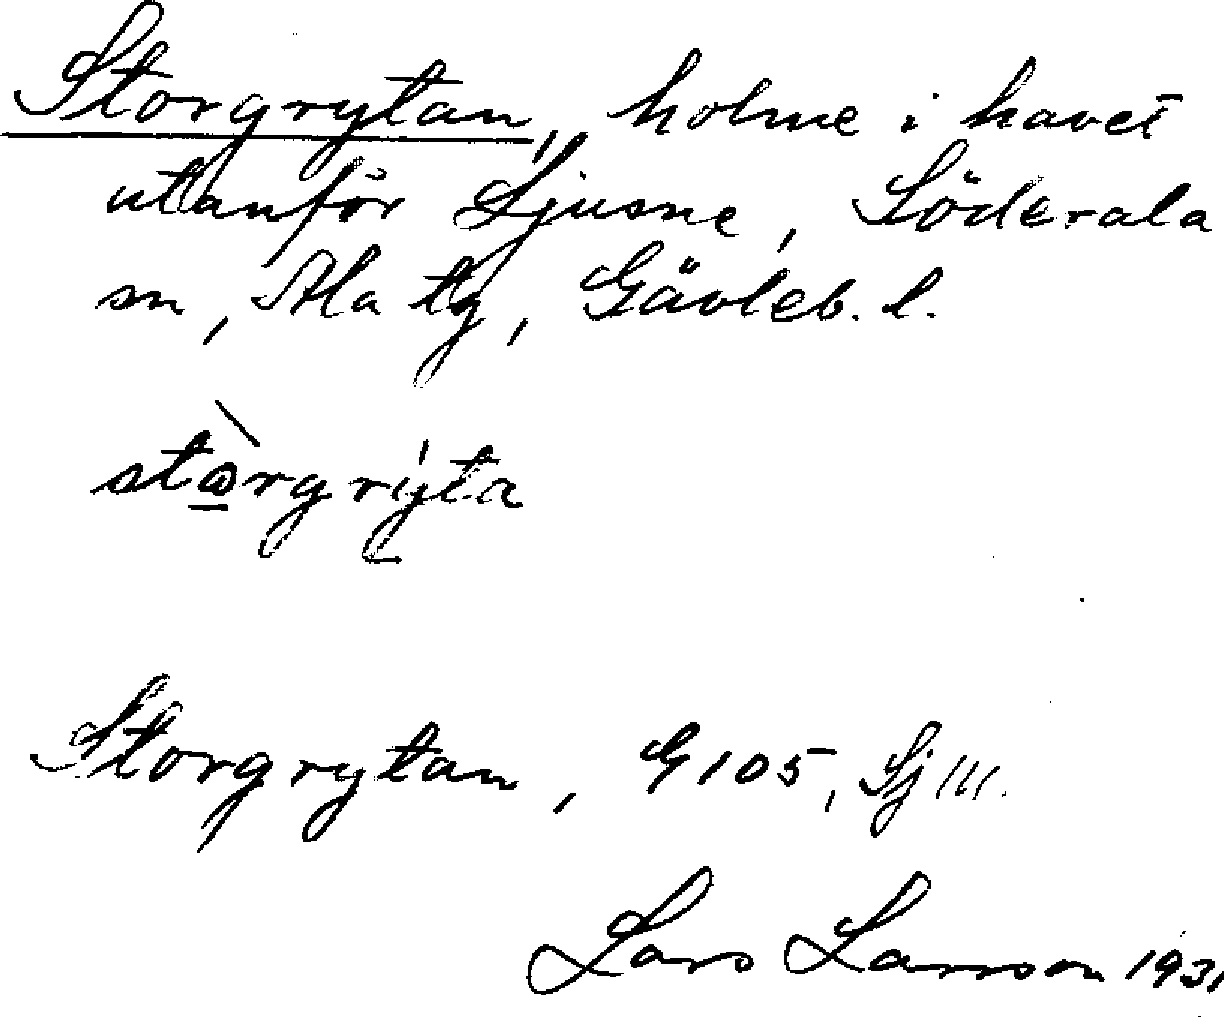 Storgrytan, holme i havet
utanför Ljusne, Söderala
sn, Ala tg, Gävleb. l.
stòrgrýta
Storgrytan, G105, Sj 111.
Lars Larsson 1931